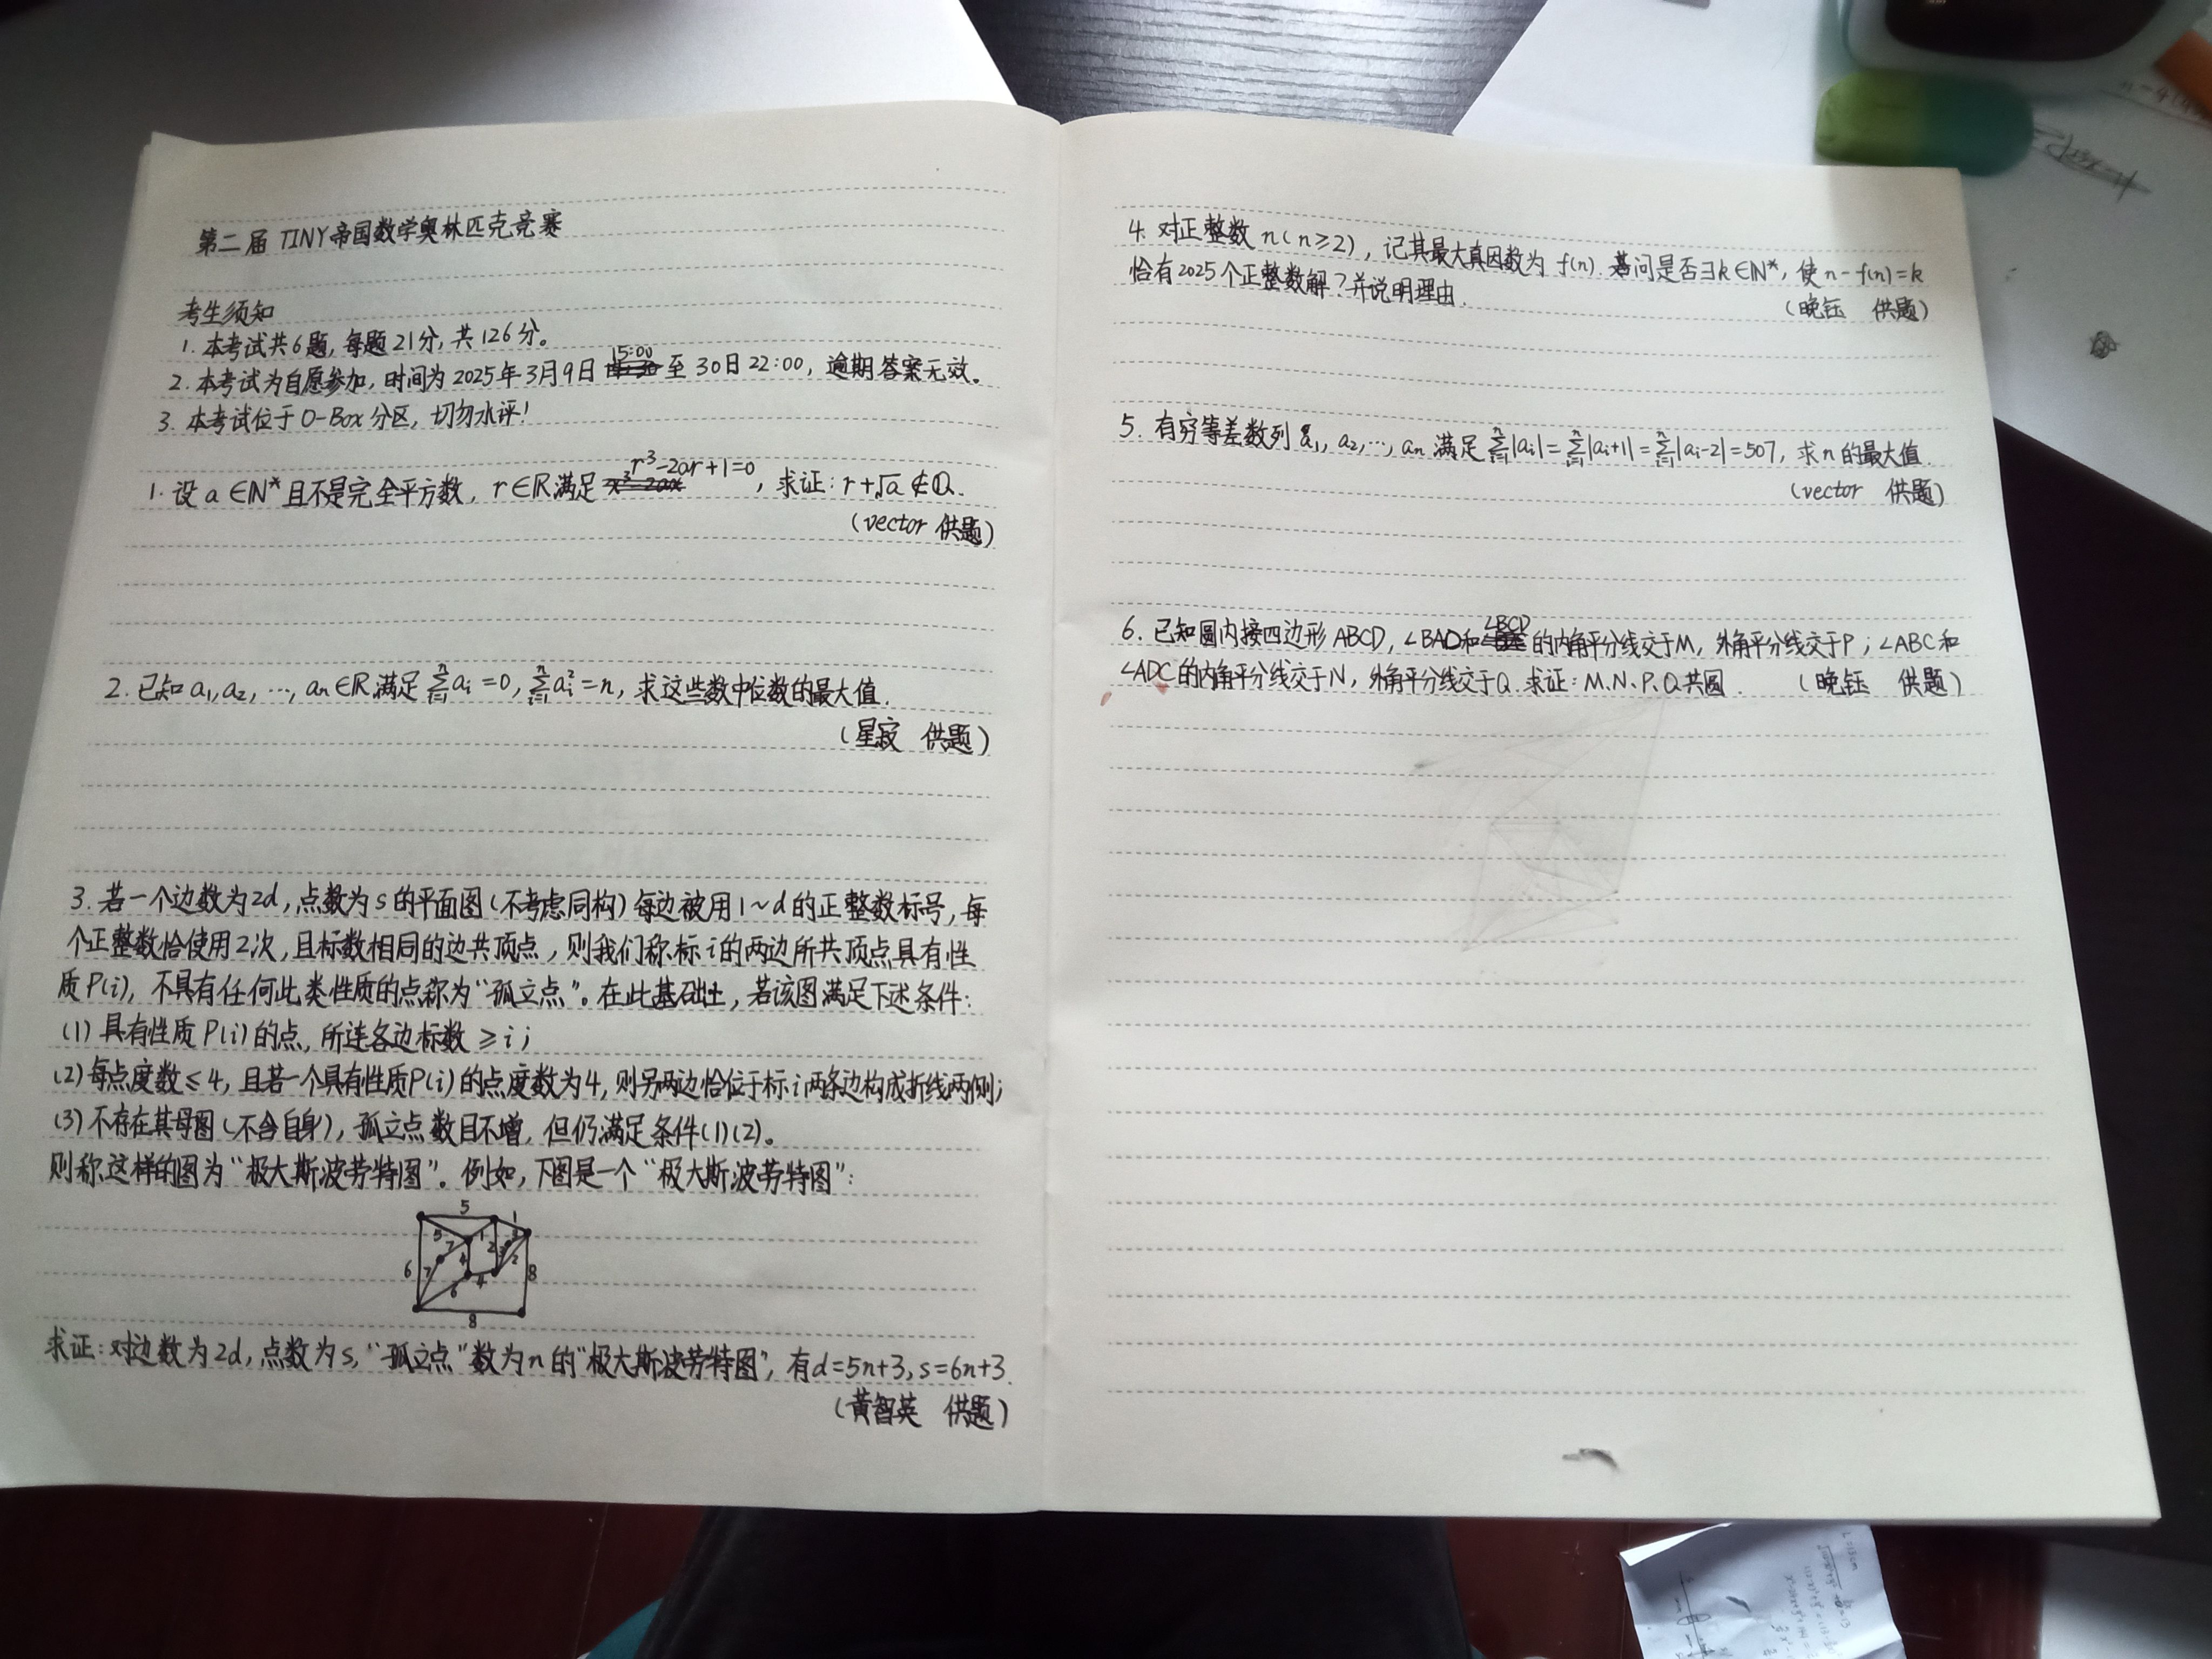 第二届 TINY帝国数学奥林匹克竞赛
考生须知
1. 本考试共6题，每题21分，共126分。
2. 本考试为自愿参加，时间为2025年3月9日 15:00 至 30日22:00，逾期答案无效。
3. 本考试位于O-Box分区，切勿水评！
1. 设a∈N*且不是完全平方数，r∈R满足 r³-2ar+1=0，求证：r+√a∉Q.
（vector 供题）
2. 已知a₁,a₂,…,aₙ∈R满足 ∑ⁿᵢ₌₁aᵢ=0, ∑ⁿᵢ₌₁aᵢ²=n，求这些数中位数的最大值.
（星寂 供题）
3. 若一个边数为2d，点数为s的平面图（不考虑同构）每边被用1~d的正整数标号，每
个正整数恰使用2次，且标数相同的边共顶点，则我们称标i的两边所共顶点具有性
质P(i)，不具有任何此类性质的点称为“孤立点”。在此基础上，若该图满足下述条件：
(1) 具有性质P(i)的点，所连各边标数≥i；
(2) 每点度数≤4，且若一个具有性质P(i)的点度数为4，则另两边恰位于标i两条边构成折线两侧；
(3) 不存在其母图（不含自身），孤立点数目不增，但仍满足条件(1)(2)。
则称这样的图为“极大斯波劳特图”。例如，下图是一个“极大斯波劳特图”：
5 1
5 7 1 2 3 3
6 7 4 2 8
6 4
8
求证：对边数为2d，点数为s，“孤立点”数为n的“极大斯波劳特图”，有d=5n+3, s=6n+3.
（黄智英 供题）
4. 对正整数n(n≥2)，记其最大真因数为f(n). 问是否∃k∈N*，使n-f(n)=k
恰有2025个正整数解？并说明理由.
（晚钰 供题）
5. 有穷等差数列a₁, a₂, …, aₙ满足 ∑ⁿᵢ₌₁|aᵢ|=∑ⁿᵢ₌₁|aᵢ+1|=∑ⁿᵢ₌₁|aᵢ-2|=507，求n的最大值.
（vector 供题）
6. 已知圆内接四边形ABCD，∠BAD和∠BCD的内角平分线交于M，外角平分线交于P；∠ABC和
∠ADC的内角平分线交于N，外角平分线交于Q. 求证：M、N、P、Q共圆. （晚钰 供题）